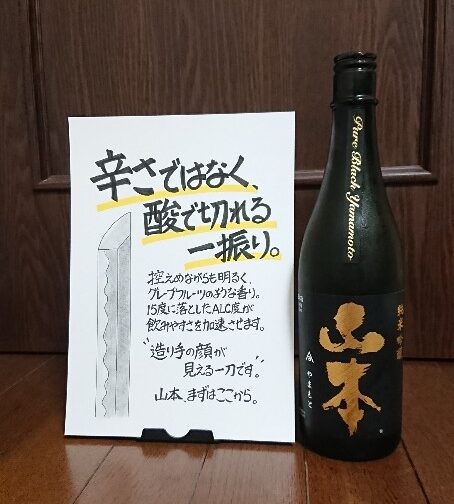 辛さではなく、
酸で切れる
一振り。
控えめながらも明るく、
グレープフルーツのような香り。
15度に落としたALC度が
飲みやすさを加速させます。
"造り手の顔が
見える一刀です。"
山本、まずはここから。
Pure Black Yamamoto
純米吟醸
山本
やまもと